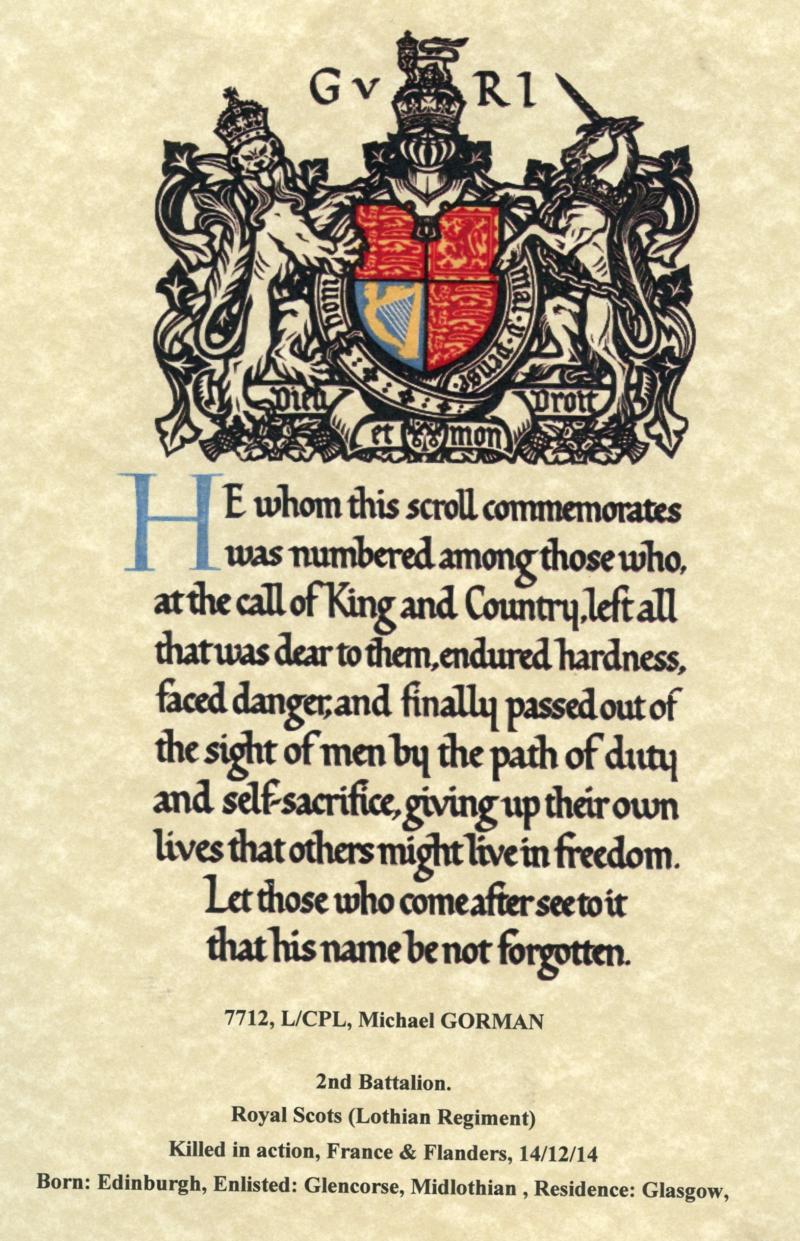 G V R I
Honi mal · y · pense ·
Dieu et mon Droit
HE whom this scroll commemorates
was numbered among those who,
at the call of King and Country, left all
that was dear to them, endured hardness,
faced danger, and finally passed out of
the sight of men by the path of duty
and self-sacrifice, giving up their own
lives that others might live in freedom.
Let those who come after see to it
that his name be not forgotten.
7712, L/CPL, Michael GORMAN
2nd Battalion.
Royal Scots (Lothian Regiment)
Killed in action, France & Flanders, 14/12/14
Born: Edinburgh, Enlisted: Glencorse, Midlothian , Residence: Glasgow,